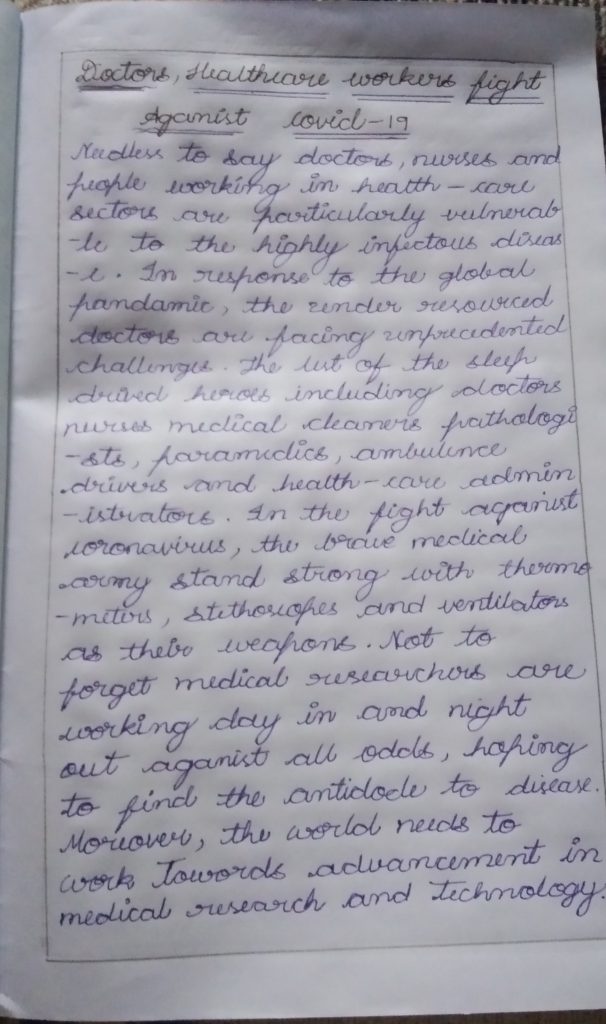 Doctors, Healthcare workers fight
Aganist Covid-19
Needless to say doctors, nurses and
people working in health-care
sectors are particularly vulnerab
-le to the highly infectous diseas
-e. In response to the global
pandamic, the render resourced
doctors are facing unprecedented
challenges. The list of the sleep
drived heroes including doctors
nurses medical cleaners pathologi
-sts, paramedics, ambulence
drivers and health-care admin
-istrators. In the fight aganist
coronavirus, the brave medical
army stand strong with thermo
-meters, stethoscopes and ventilators
as their weapons. Not to
forget medical researchers are
working day in and night
out aganist all odds, hoping
to find the antidode to disease.
Moreover, the world needs to
work Towords advancement in
medical research and technology.